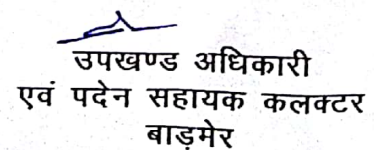 उपखण्ड अधिकारी
एवं पदेन सहायक कलक्टर
बाड़मेर